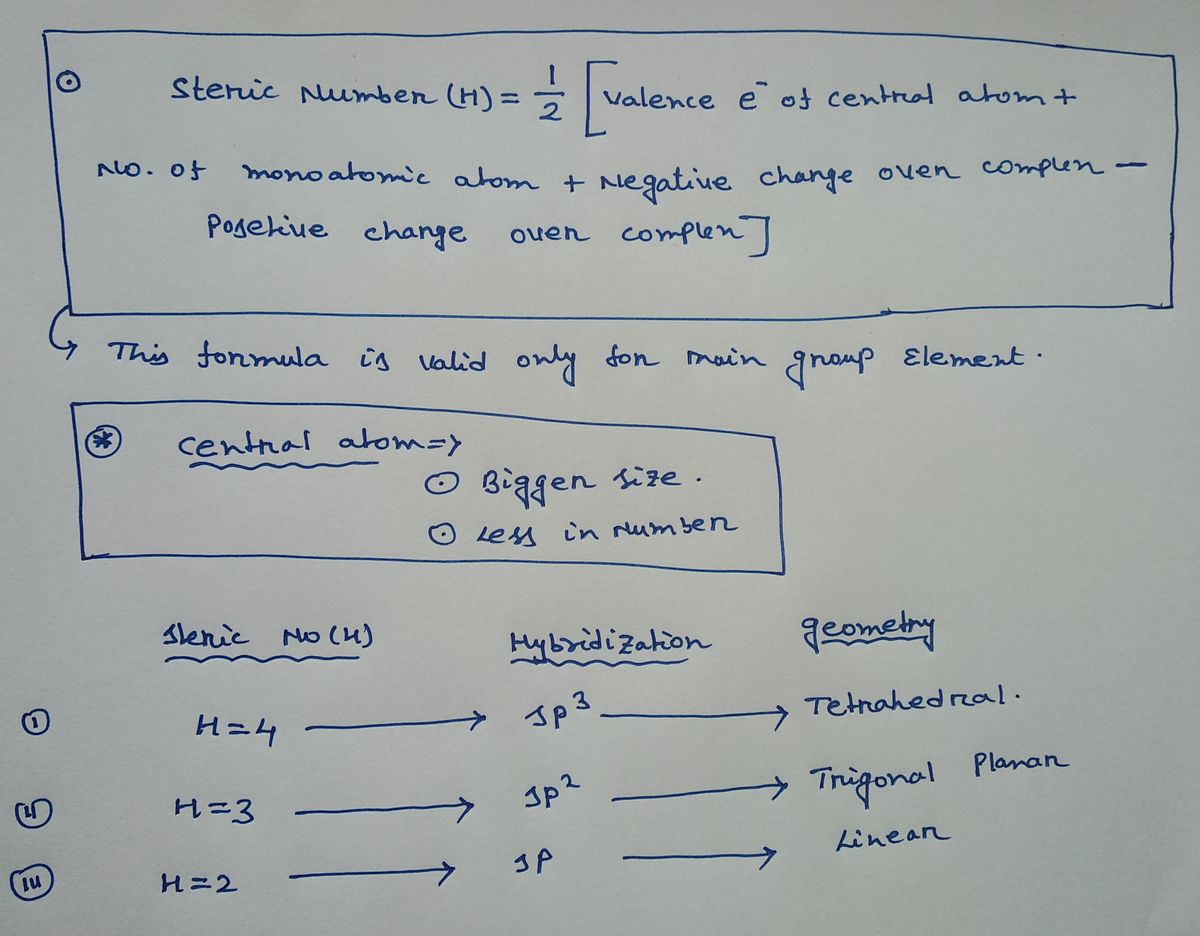 ⊙ Steric Number (H) = 1/2 [valence e⁻ of central atom +
No. of monoatomic atom + Negative change over complex −
Posetive change over complex]
↳ This formula is valid only for main group Element.
⊛ central atom =>
⊙ Bigger size.
⊙ Less in Number
Steric No (H) Hybridization geometry
(i) H=4 → sp³ → Tetrahedral.
(ii) H=3 → sp² → Trigonal Planar
(iii) H=2 → sp → Linear